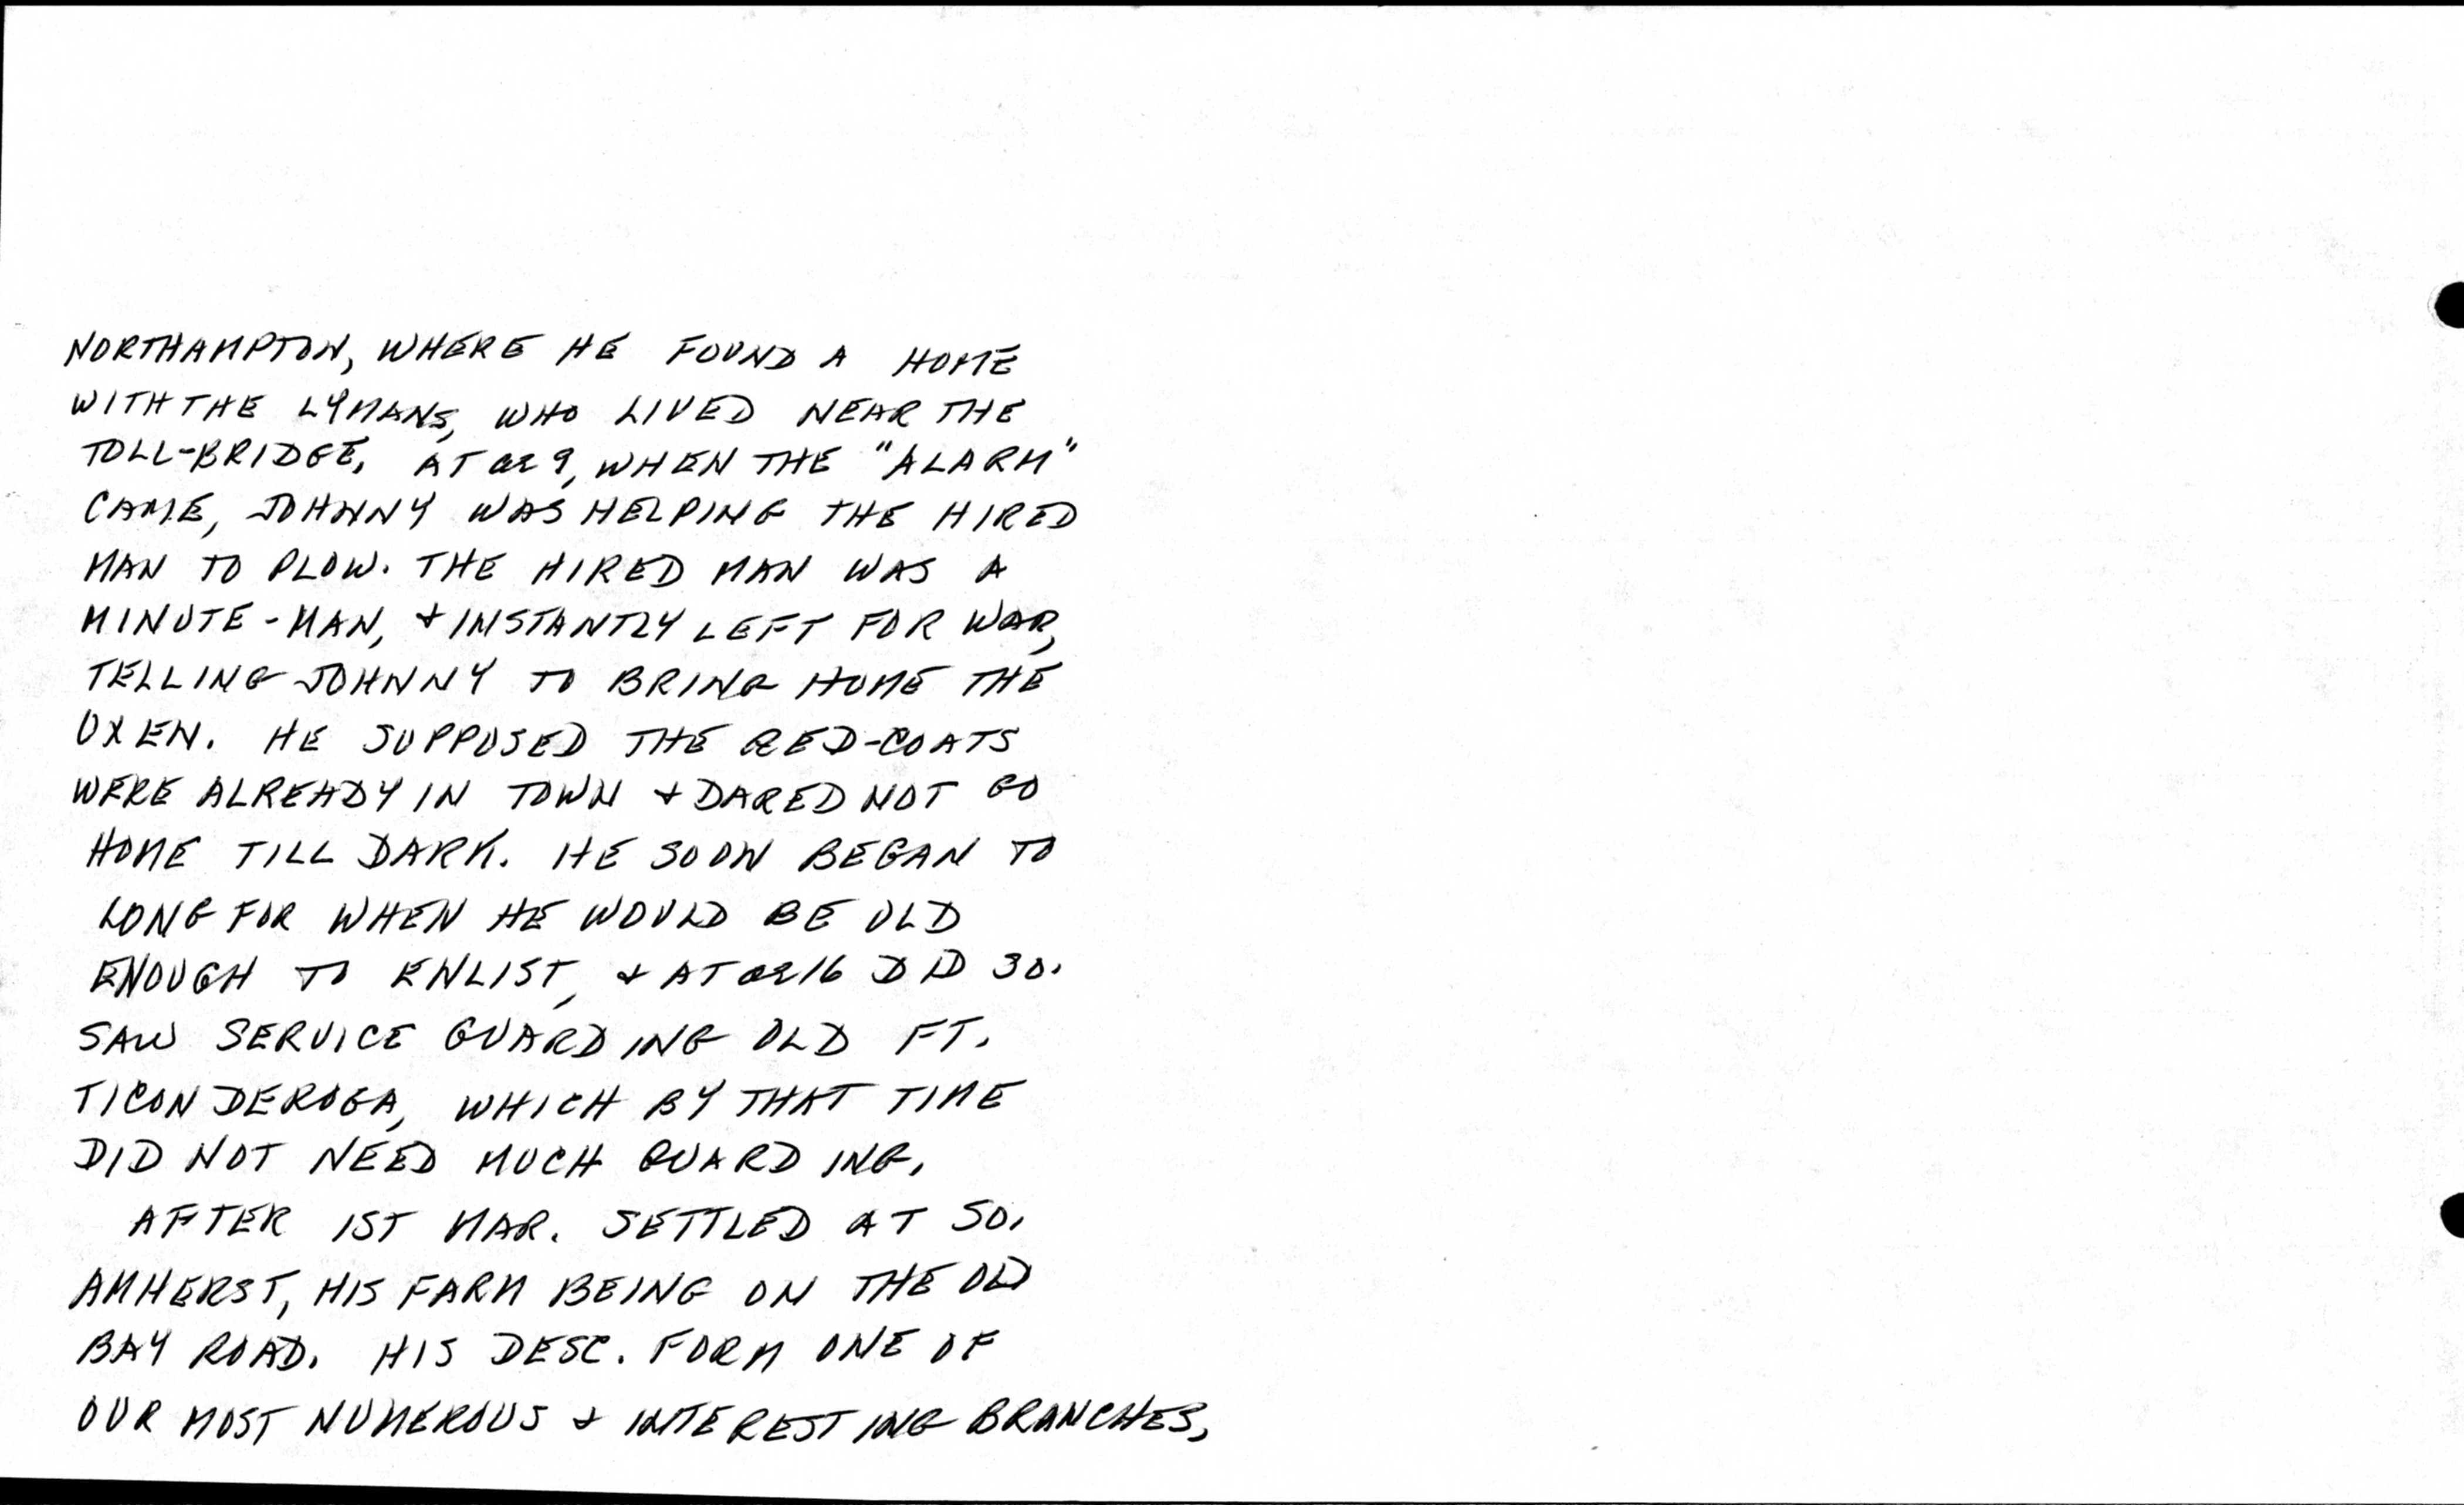 NORTHAMPTON, WHERE HE FOUND A HOME
WITH THE LYMANS, WHO LIVED NEAR THE
TOLL-BRIDGE. AT ae 9, WHEN THE "ALARM"
CAME, JOHNNY WAS HELPING THE HIRED
MAN TO PLOW. THE HIRED MAN WAS A
MINUTE-MAN, & INSTANTLY LEFT FOR WAR,
TELLING JOHNNY TO BRING HOME THE
OXEN. HE SUPPOSED THE RED-COATS
WERE ALREADY IN TOWN & DARED NOT GO
HOME TILL DARK. HE SOON BEGAN TO
LONG FOR WHEN HE WOULD BE OLD
ENOUGH TO ENLIST, & AT ae 16 DID SO.
SAW SERVICE GUARDING OLD FT.
TICONDEROGA, WHICH BY THAT TIME
DID NOT NEED MUCH GUARDING.
AFTER 1ST MAR. SETTLED AT SO.
AMHERST, HIS FARM BEING ON THE OLD
BAY ROAD. HIS DESC. FORM ONE OF
OUR MOST NUMEROUS & INTERESTING BRANCHES,